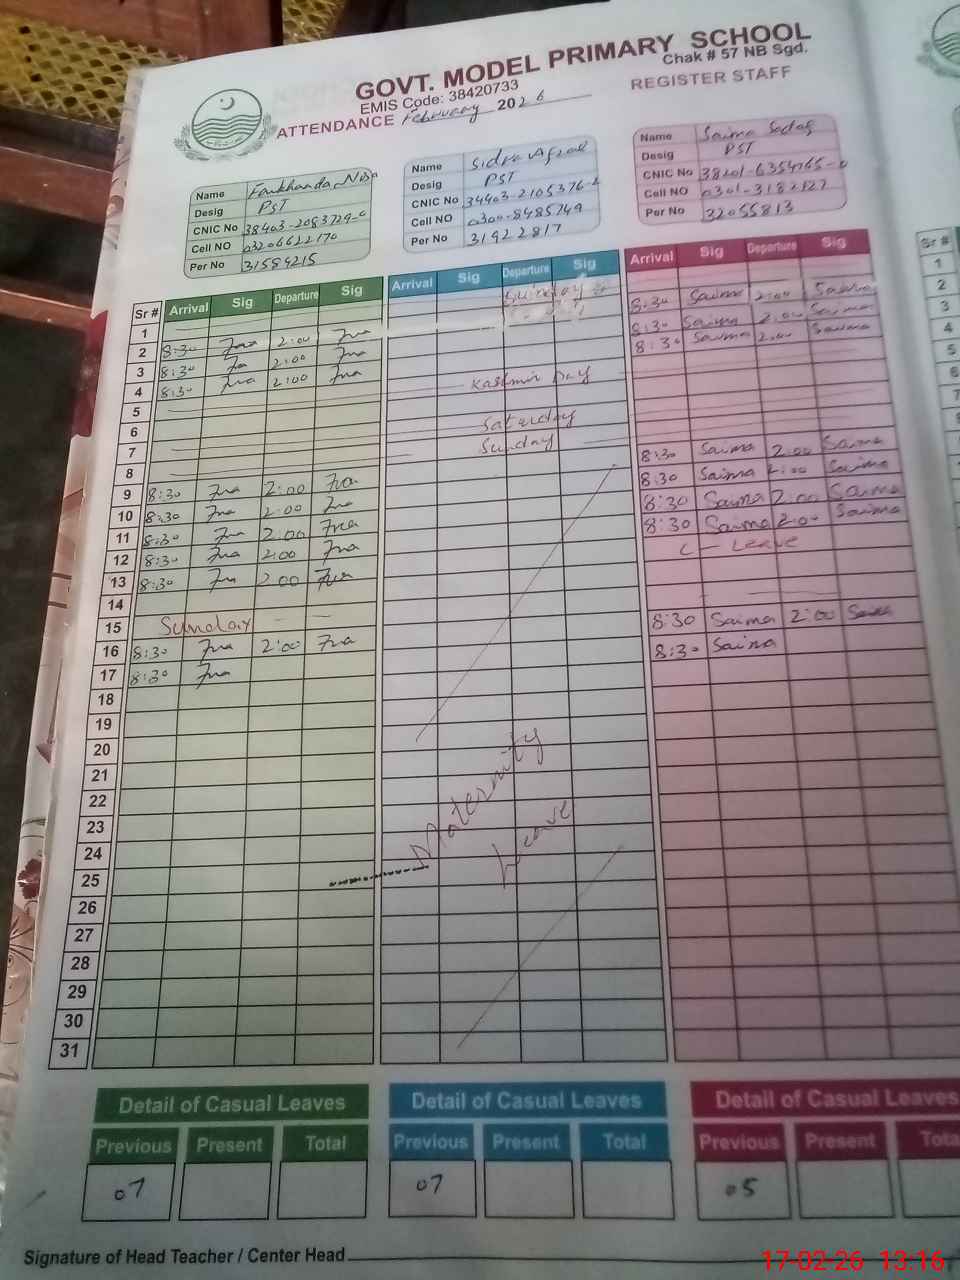 GOVT. MODEL PRIMARY SCHOOL
Chak # 57 NB Sgd.
EMIS Code: 38420733
ATTENDANCE February 2026 REGISTER STAFF
Name Farkhanda
Desig PST
CNIC No 38403-2083729-0
Cell NO 03206622170
Per No 31584215
Name Sidra Afzal
Desig PST
CNIC No 34403-2105376-
Cell NO 0300-8485749
Per No 31922817
Name Saima Sadaf
Desig PST
CNIC No 38401-6354765-0
Cell NO 0301-3182127
Per No 32055813
Sr # Arrival Sig Departure Sig Arrival Sig Departure Sig Arrival Sig Departure Sig
1 Sunday
2 8:30 2:00 8:30 Saima 2:00 Saima
3 8:30 2:00 8:30 Saima 2:00 Saima
4 8:30 2:00 8:30 Saima 2:00 Saima
5 Kashmir Day
6
7 Saturday
8 Sunday
9 8:30 2:00 8:30 Saima 2:00 Saima
10 8:30 2:00 8:30 Saima 2:00 Saima
11 8:30 2:00 8:30 Saima 2:00 Saima
12 8:30 2:00 8:30 Saima 2:00 Saima
13 8:30 2:00 C - Leave
14
15 Sunday
16 8:30 2:00 8:30 Saima 2:00 Saima
17 8:30 8:30 Saima
18
19
20
21
22
23
24
25
26
27
28
29
30
31
Maternity
Leave
Detail of Casual Leaves Detail of Casual Leaves Detail of Casual Leaves
Previous Present Total Previous Present Total Previous Present
07 07 05
Signature of Head Teacher / Center Head
Sr #
1
2
3
4
5
6
7
17-02-26 13:16